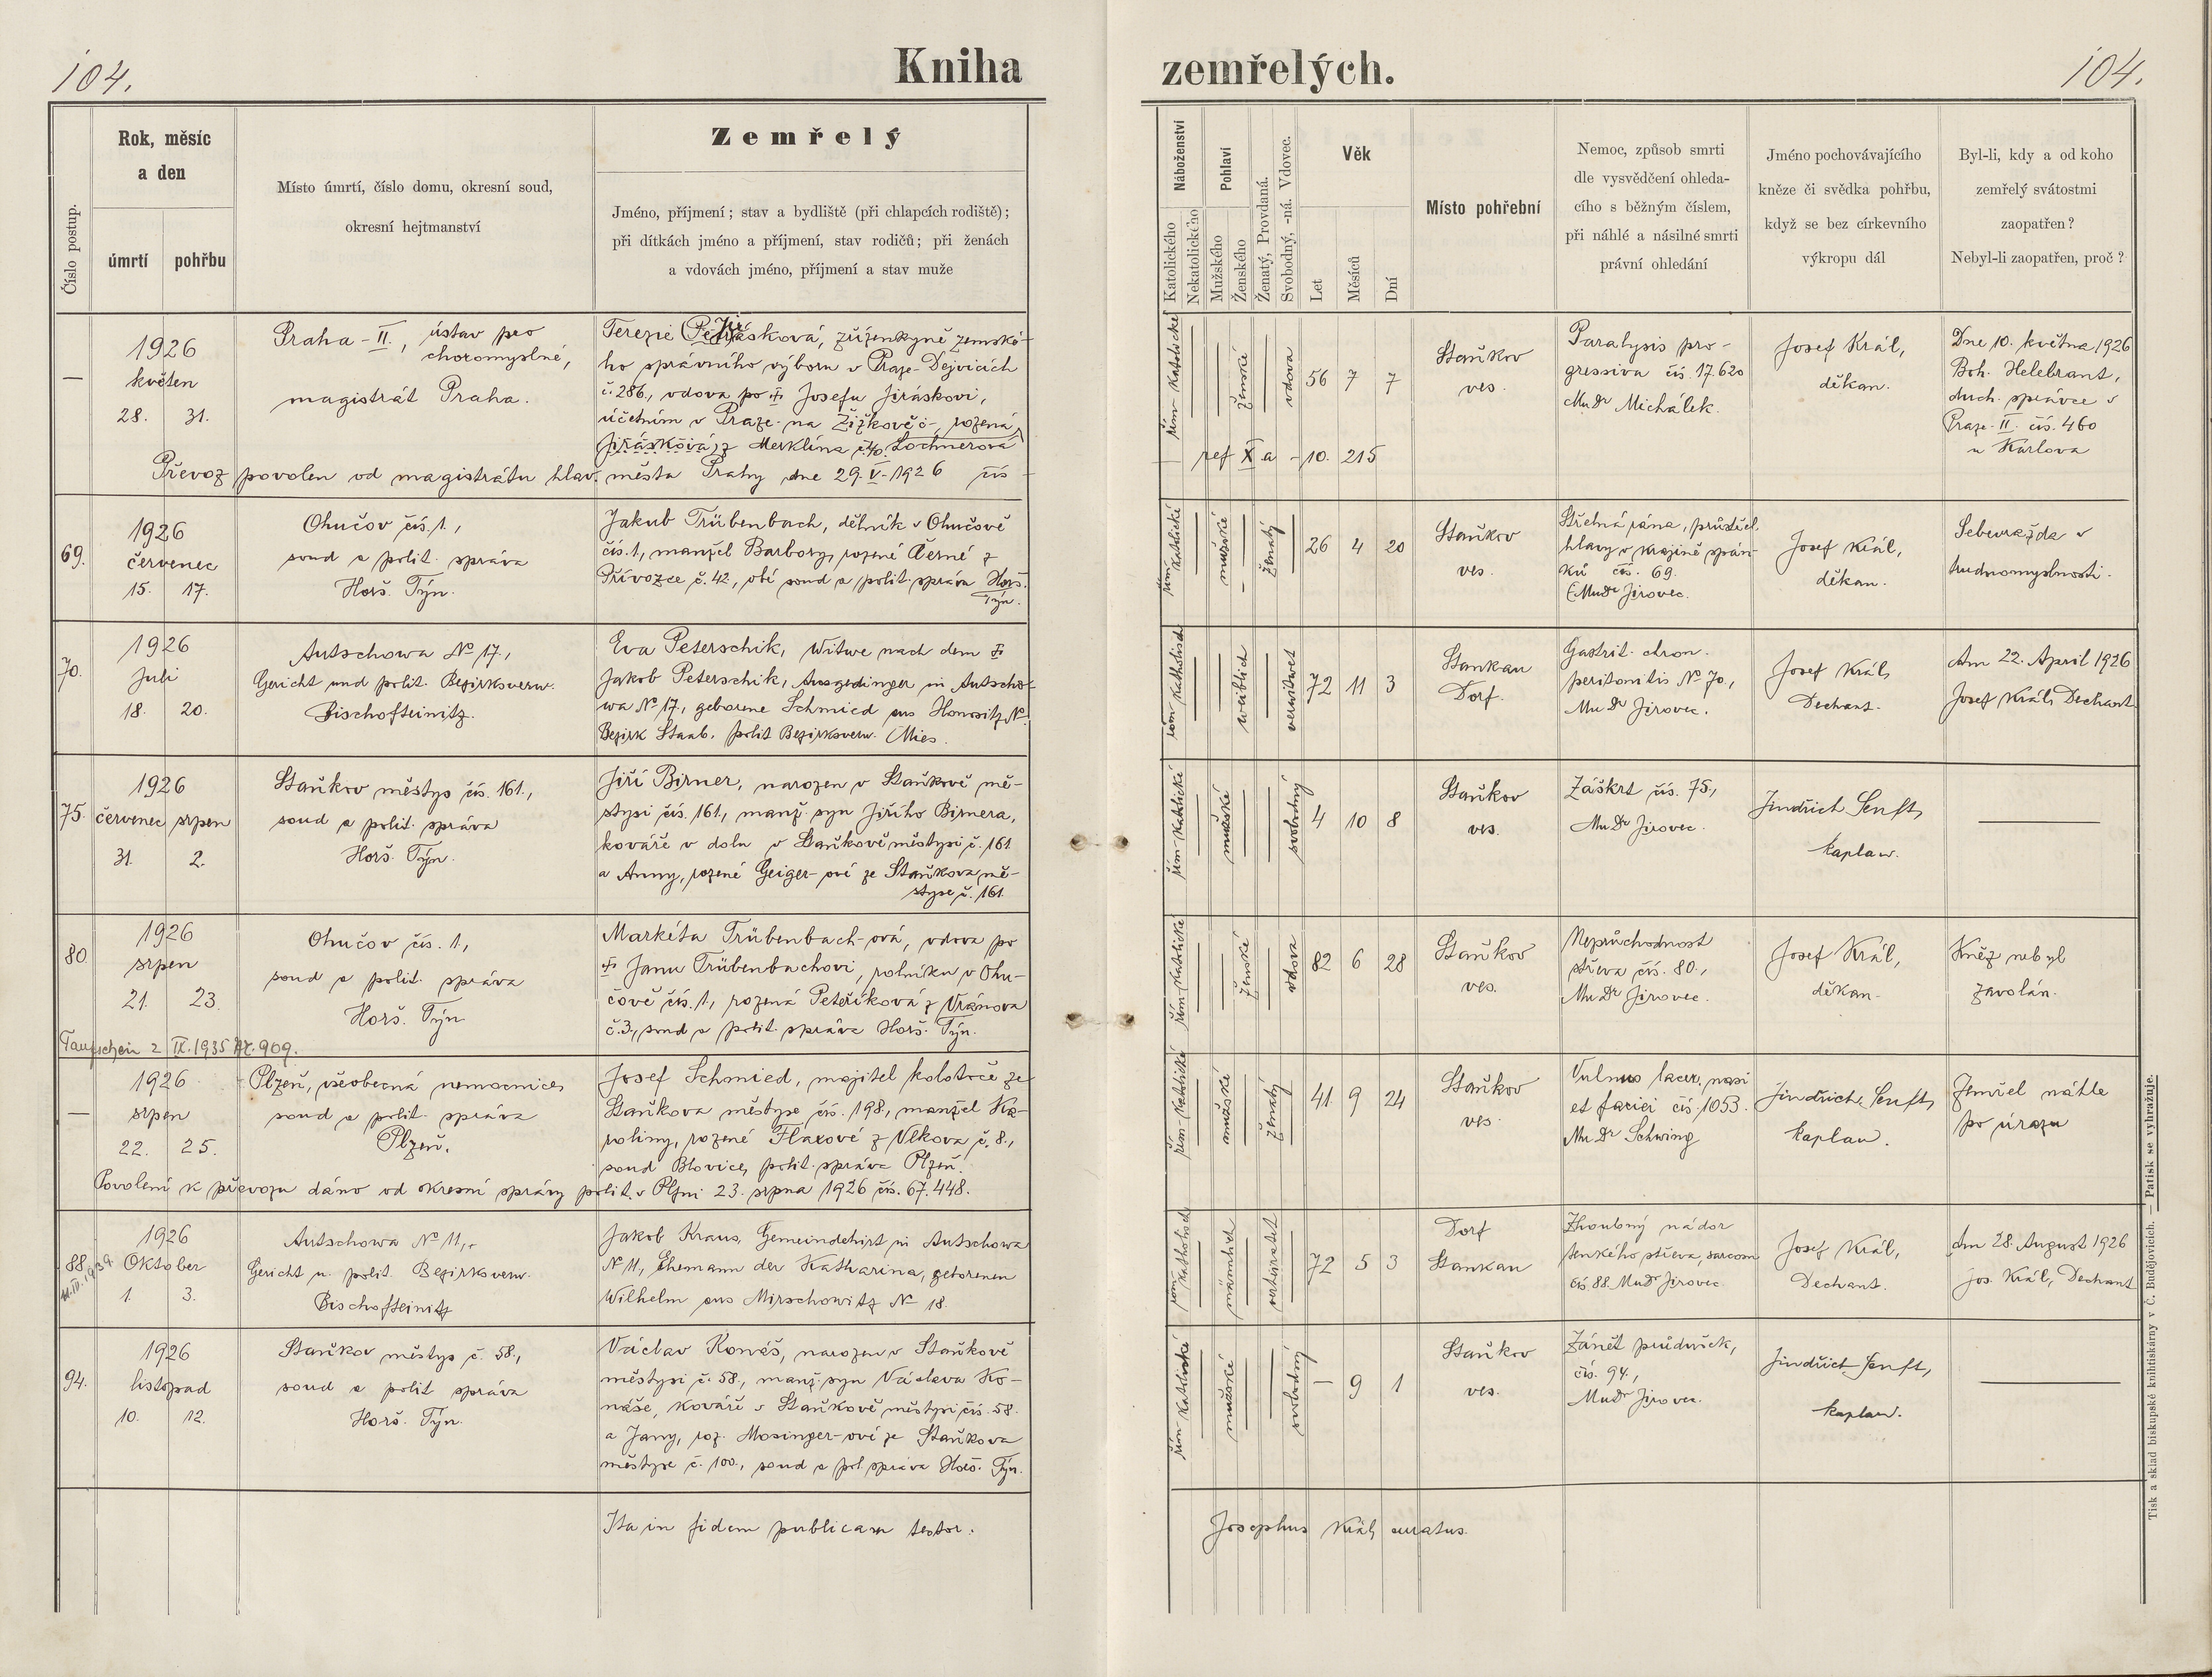 104.
Kniha
zemřelých.
104.
Číslo postup.
Rok, měsíc
a den
úmrtí
pohřbu
Místo úmrtí, číslo domu, okresní soud,
okresní hejtmanství
Zemřelý
Jméno, příjmení; stav a bydliště (při chlapcích rodiště);
při dítkách jméno a příjmení, stav rodičů; při ženách
a vdovách jméno, příjmení a stav muže
Náboženství
Katolického
Nekatolického
Pohlaví
Mužského
Ženského
Ženatý, Provdaná.
Svobodný, -ná. Vdovec.
Věk
Let
Měsíců
Dní
Místo pohřební
Nemoc, způsob smrti
dle vysvědčení ohleda-
cího s běžným číslem,
při náhlé a násilné smrti
právní ohledání
Jméno pochovávajícího
kněze či svědka pohřbu,
když se bez církevního
výkropu dál
Byl-li, kdy a od koho
zemřelý svátostmi
zaopatřen?
Nebyl-li zaopatřen, proč?
—
1926
květen
28. 31.
Praha - II., ústav pro
choromyslné,
magistrát Praha.
Terezie Jirásková, zřízenkyně zemské-
ho správního výboru v Praze-Dejvicích
č. 286., vdova po † Josefu Jiráskovi,
účetním v Praze na Žižkově, rozená
Jirásková, z Merklína č. 40. Lochnerová
Převoz povolen od magistrátu hlav. města Prahy dne 29. V. 1926 čís
řím-katolické
ženské
vdova
56 7 7
Staňkov
ves.
Paralysis pro-
gressiva čís. 17.620
MuDr Michálek.
Josef Král,
děkan.
Dne 10. května 1926
Boh. Helebrant,
duch. správce v
Praze-II. čís. 460
u Karlova
ref X a - 10. 215
69.
1926
červenec
15. 17.
Ohučov čís. 1.,
soud a polit. správa
Horš. Týn.
Jakub Trübenbach, dělník v Ohučově
čís. 1, manžel Barbory, rozené Černé z
Přívozce č. 42, obé soud a polit. správa Horš.
Týn.
řím-katolické
mužské
ženatý
26 4 20
Staňkov
ves.
Střelná rána, průstřel
hlavy v krajině spán-
ků čís. 69.
MuDr Jirovec.
Josef Král,
děkan.
Sebevražda v
trudnomyslnosti.
70.
1926
Juli
18. 20.
Autschowa No 17.,
Gericht und polit. Bezirksverw.
Bischofteinitz.
Eva Peterschik, Witwe nach dem †
Jakob Peterschik, Ausgedinger in Autscho-
wa No 17., geborene Schmied aus Honositz No
Bezirk Staab, polit Bezirksverw. Mies.
röm-katholisch
weiblich
verwitwet
72 11 3
Stankau
Dorf.
Gastrit. chron.
peritonitis No 70.,
MuDr Jirovec.
Josef Král,
Dechant.
Am 22. April 1926
Josef Král, Dechant
75.
1926
červenec srpen
31. 2.
Staňkov městys čís. 161.,
soud a polit. správa
Horš. Týn.
Jiří Birner, narozen v Staňkově mě-
stysi čís. 161., manž. syn Jiřího Birnera,
kováře v dolu v Staňkově městysi č. 161
a Anny, rozené Geiger-ové ze Staňkova mě-
styse č. 161.
řím-katolické
mužské
svobodný
4 10 8
Staňkov
ves.
Záškrt čís. 75.,
MuDr Jirovec.
Jindřich Senft,
kaplan.
80.
1926
srpen
21. 23.
Ohučov čís. 1,
soud a polit. správa
Horš. Týn
Markéta Trübenbach-ová, vdova po
† Janu Trübenbachovi, rolníku v Ohu-
čově čís. 1, rozená Peteříková z Vránova
č. 3., soud a polit. správa Horš. Týn.
řím-katolické
ženské
vdova
82 6 28
Staňkov
ves.
Neprůchodnost
střeva čís. 80.,
MuDr Jirovec.
Josef Král,
děkan.
Kněz nebyl
zavolán.
Taufschein 2 IX. 1935 Nr. 909.
—
1926
srpen
22. 25.
Plzeň, všeobecná nemocnice,
soud a polit. správa
Plzeň.
Josef Schmied, majitel kolotoče ze
Staňkova městyse čís. 198, manžel Ka-
roliny, rozené Flaxové z Vlkova č. 8.,
soud Blovice, polit. správa Plzeň.
Povolení k převozu dáno od okresní správy polit. v Plzni 23. srpna 1926 čís. 67.448.
řím-katolické
mužské
ženatý
41. 9 24
Staňkov
ves.
Vulnus lacer. nasi
et faciei čís. 1053.
MuDr Schwing
Jindřich Senft,
kaplan.
Zemřel náhle
po úrazu
88.
1926
Oktober
1. 3.
Autschowa No 11.,
Gericht u. polit. Bezirksverw.
Bischofteinitz
Jakob Kraus, Gemeindehirt in Autschowa
No 11, Ehemann der Katharina, geborenen
Wilhelm aus Mirschowitz No 18.
röm-katholisch
männlich
verheiratet
72 5 3
Dorf
Stankau
Zhoubný nádor
tenkého střeva, sarcom
čís. 88. MuDr Jirovec
Josef Král,
Dechant.
Am 28. August 1926
jos. Král, Dechant
94.
1926
listopad
10. 12.
Staňkov městys č. 58.,
soud a polit správa
Horš. Týn.
Václav Konáš, narozen v Staňkově
městysi č. 58., manž. syn Václava Ko-
náše, kováře v Staňkově městysi čís. 58.
a Jany, roz. Mosinger-ové ze Staňkova
městyse č. 100., soud a pol. správa Horš. Týn.
řím-katolické
mužské
svobodný
— 9 1
Staňkov
ves.
Zánět průdušek,
čís. 94.,
MuDr Jirovec.
Jindřich Senft,
kaplan.
Ita in fidem publicam testor.
Josephus Král, curatus.
Tisk a sklad biskupské knihtiskárny v Č. Budějovicích. — Patisk se vyhražuje.